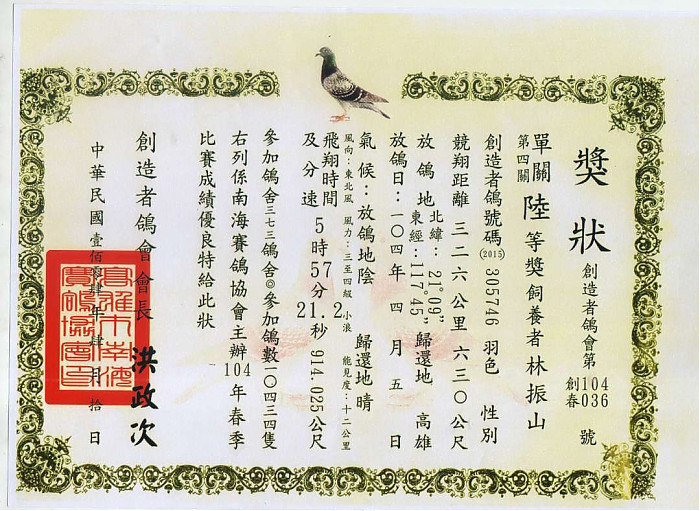 獎狀
創造者鴿會第 創104春036 號
單關 陸等獎 飼養者 林振山
第四關
創造者鴿號碼(2015) 305746 羽色 性別
競翔距離 三二六公里 六三〇公尺
放鴿地 北緯:21°09" 東經:117°45" 歸還地 高雄
放鴿日:一〇四年四月五日
氣候:放鴿地陰 歸還地晴
風向:東北風 風力:三至四級 小浪 能見度:十二公里
飛翔時間及分速 5時57分21.2秒 914.025公尺
參加鴿舍三七三鴿舍◎參加鴿數一〇四三四隻
右列係南海賽鴿協會主辦104年春季
比賽成績優良特給此狀
創造者鴿會會長 洪政次
中華民國壹佰零肆年肆月拾日